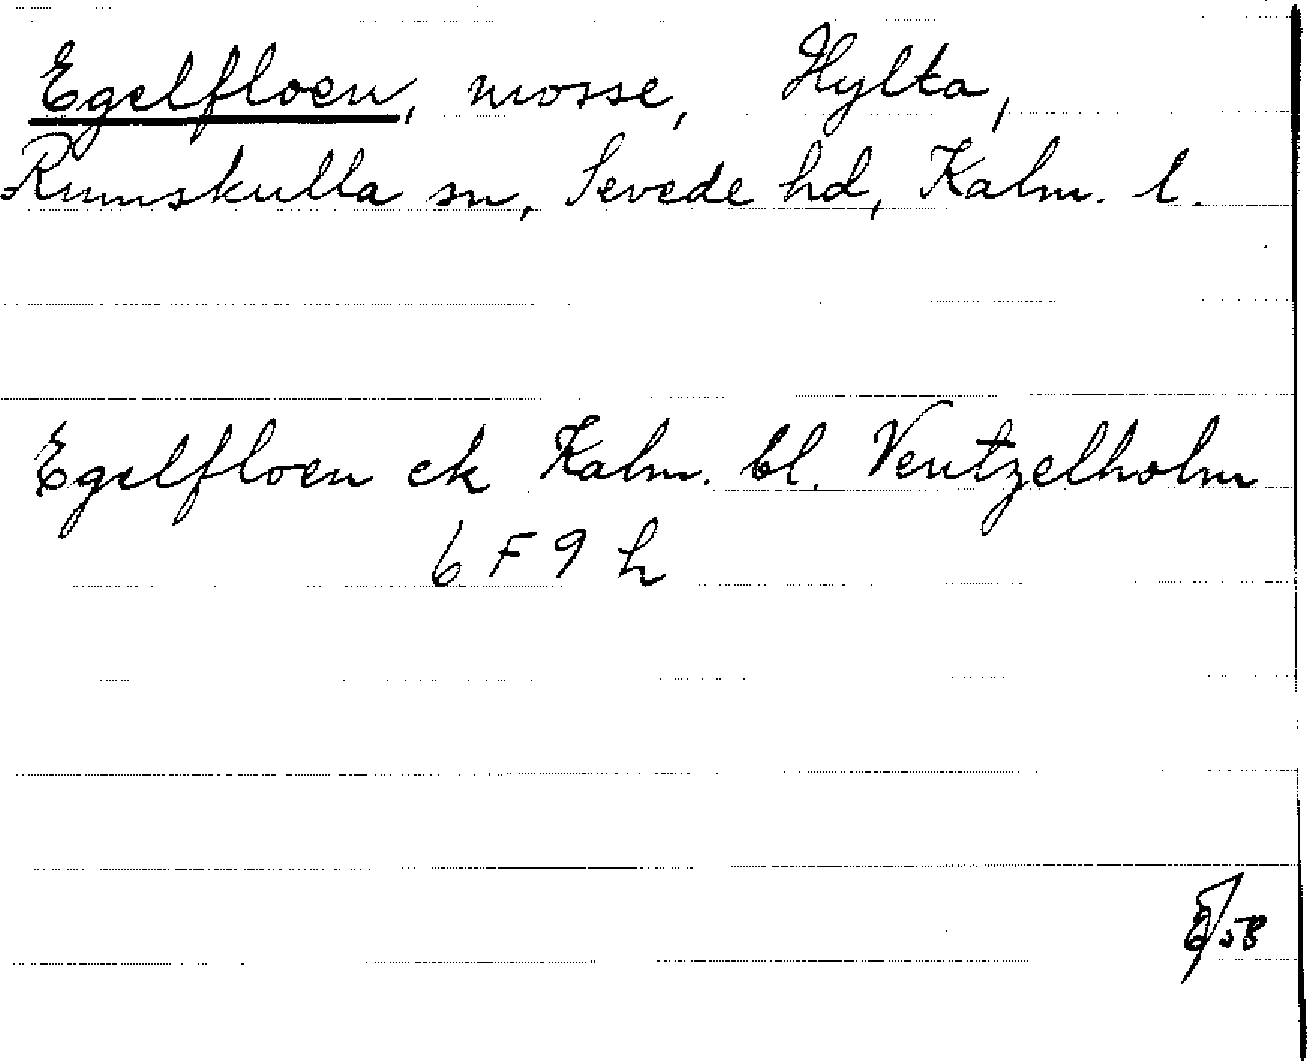 Egelfloen, mosse, Hylta,
Rumskulla sn, Sevede hd, Kalm. l.
Egelfloen ek Kalm. bl. Ventzelholm
6 F 9 h